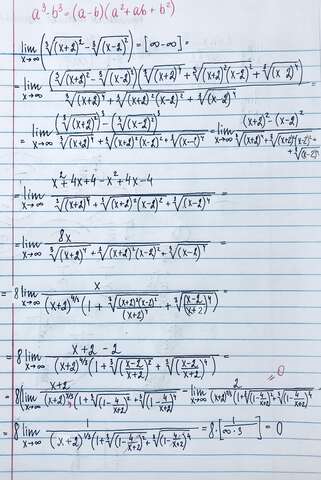 a³-b³=(a-b)(a²+ab+b²)
lim_{x→∞} (∛(x+2)² - ∛(x-2)²) = [∞-∞] =
= lim_{x→∞} (∛(x+2)² - ∛(x-2)²)(∛(x+2)⁴ + ∛(x+2)²(x-2)² + ∛(x-2)⁴) / (∛(x+2)⁴ + ∛(x+2)²(x-2)² + ∛(x-2)⁴) =
= lim_{x→∞} ((∛(x+2)²)³ - (∛(x-2)²)³) / (∛(x+2)⁴ + ∛(x+2)²(x-2)² + ∛(x-2)⁴) = lim_{x→∞} ((x+2)² - (x-2)²) / (∛(x+2)⁴ + ∛(x+2)²(x-2)² + ∛(x-2)⁴) =
= lim_{x→∞} (x²+4x+4-x²+4x-4) / (∛(x+2)⁴ + ∛(x+2)²(x-2)² + ∛(x-2)⁴) =
= lim_{x→∞} 8x / (∛(x+2)⁴ + ∛(x+2)²(x-2)² + ∛(x-2)⁴) =
= 8 lim_{x→∞} x / ((x+2)^{4/3} (1 + ∛((x+2)²(x-2)²/(x+2)⁴) + ∛((x-2)/(x+2))⁴)) =
= 8 lim_{x→∞} (x+2-2) / ((x+2)^{4/3} (1 + ∛((x-2)/(x+2))² + ∛((x-2)/(x+2))⁴)) =
= 8(lim_{x→∞} (x+2) / ((x+2)^{4/3} (1 + ∛(1-4/(x+2))² + ∛(1-4/(x+2))⁴)) - lim_{x→∞} 2 / ((x+2)^{4/3} (1 + ∛(1-4/(x+2))² + ∛(1-4/(x+2))⁴)) = 0
= 8 lim_{x→∞} 1 / ((x+2)^{1/3} (1 + ∛(1-4/(x+2))² + ∛(1-4/(x+2))⁴)) = 8·[1/(∞·3)] = 0